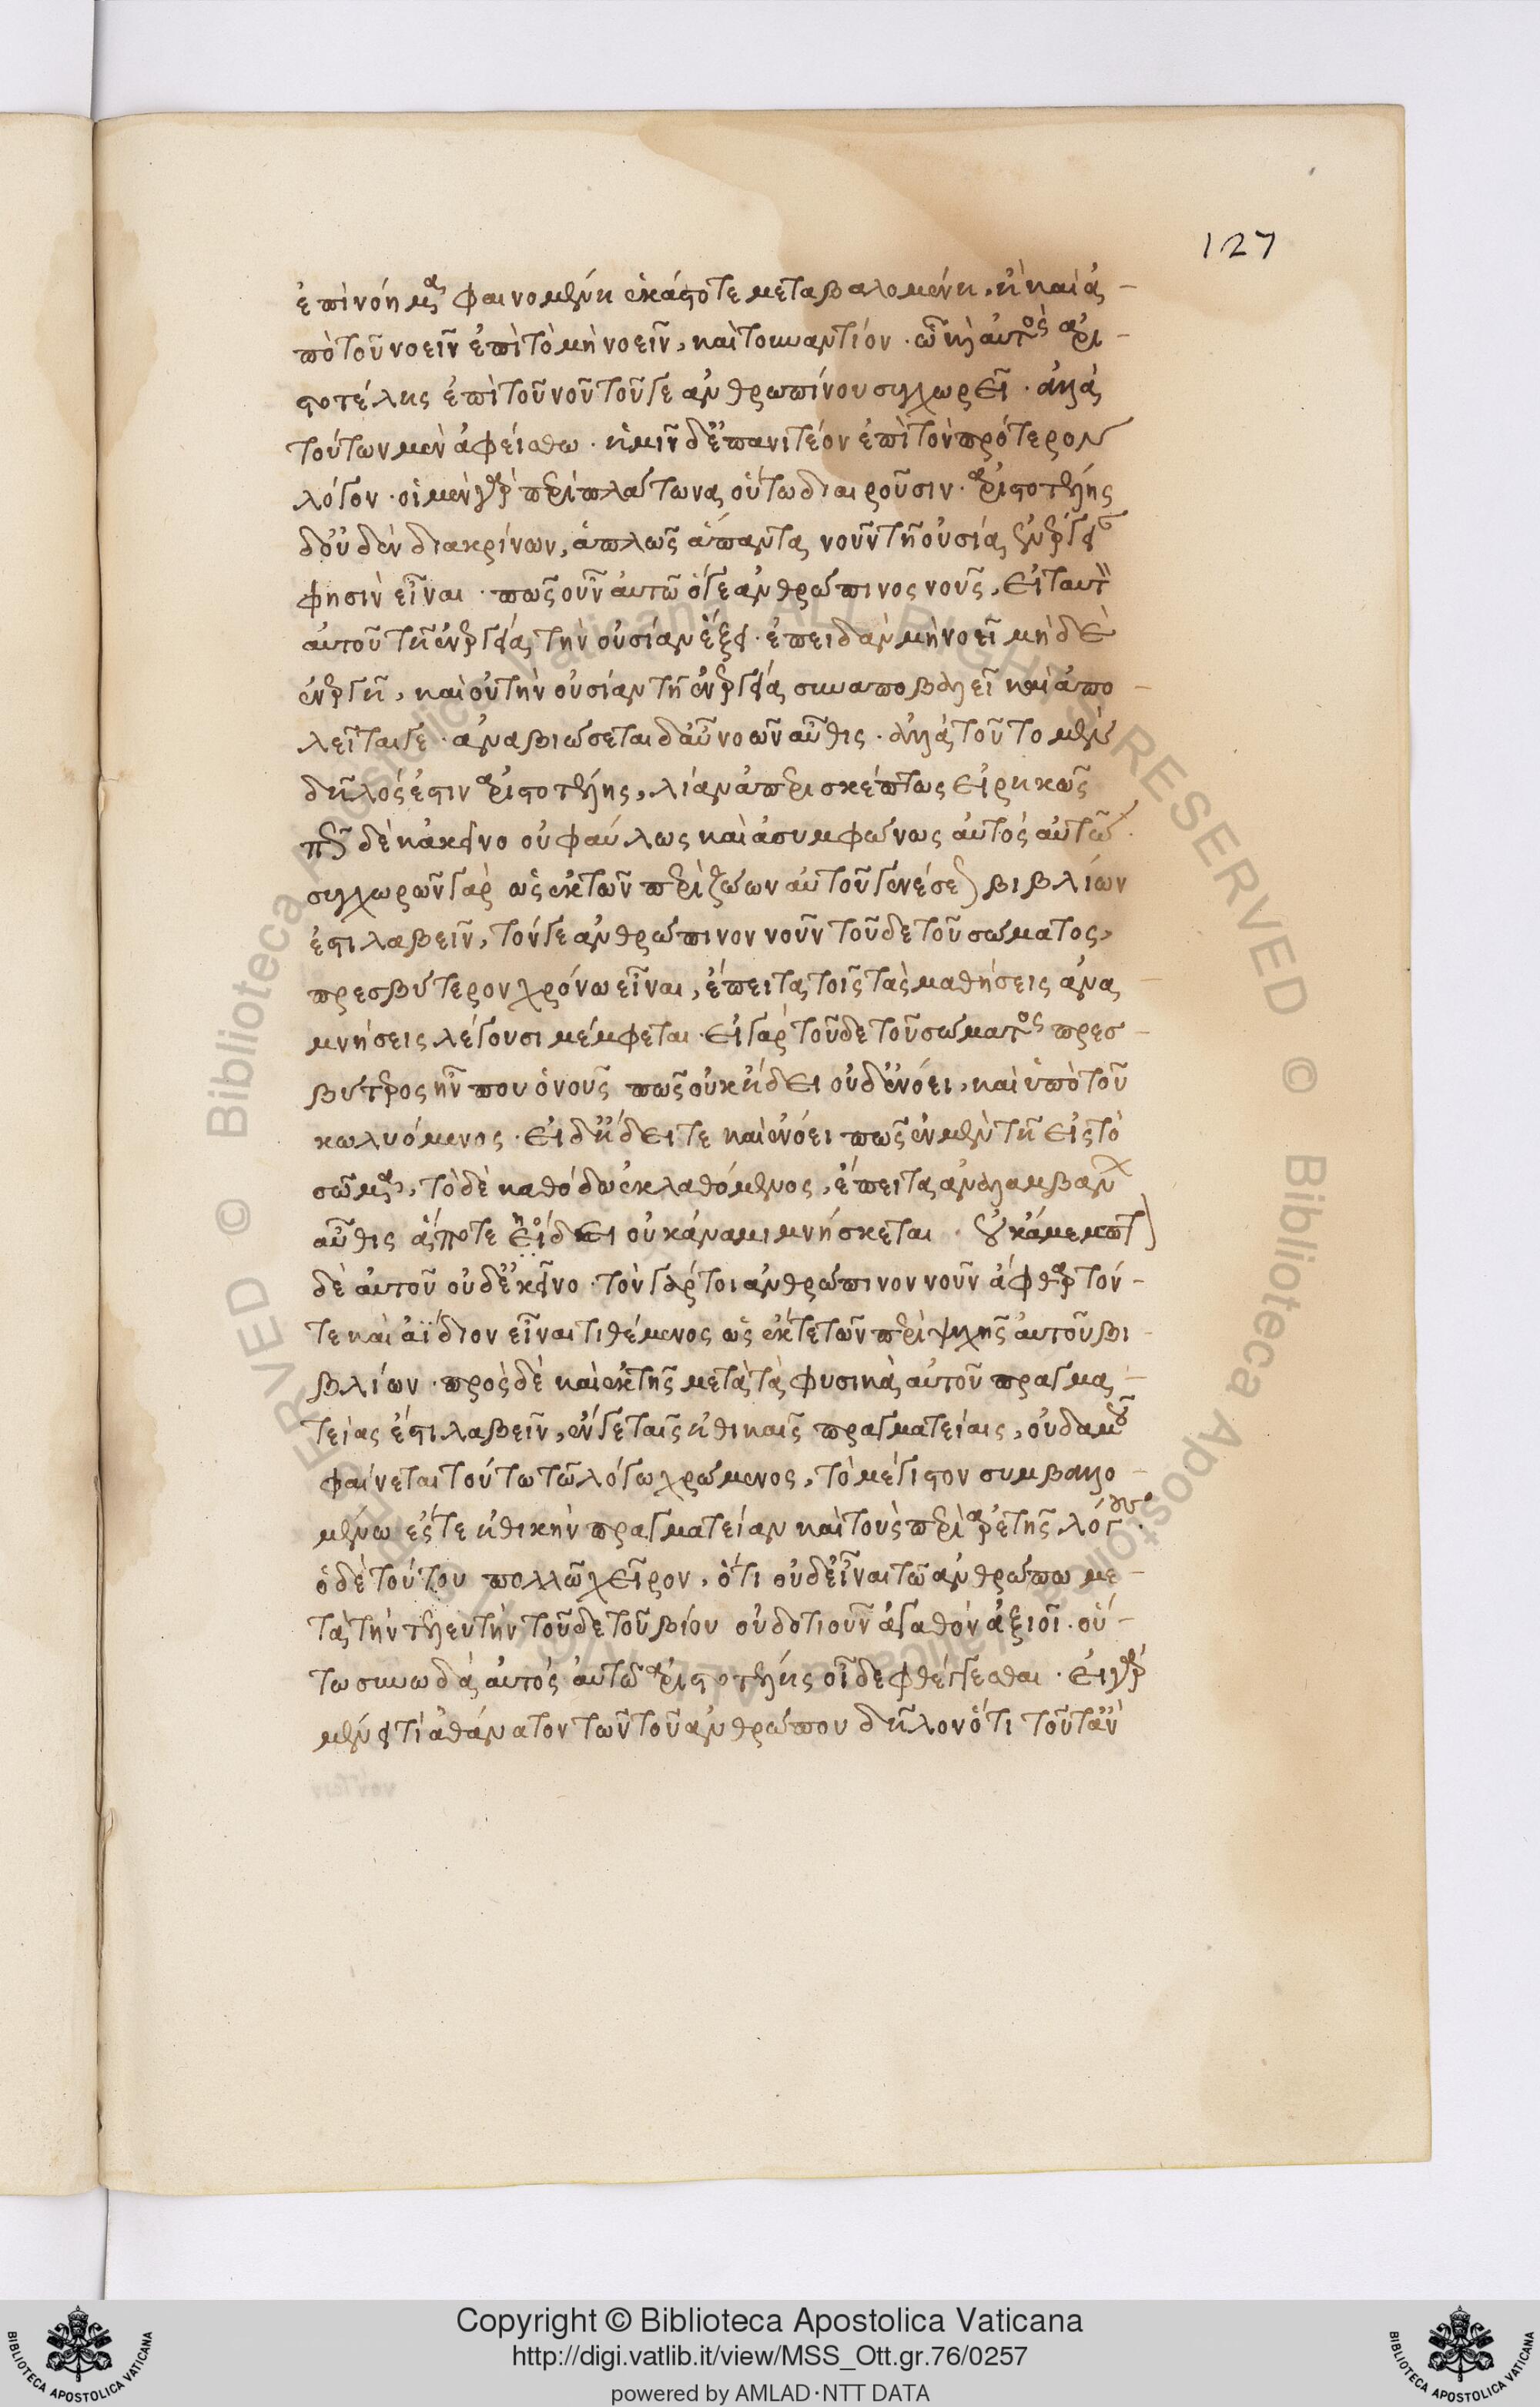 127
ἐπινόημα φαινομένη ἑκάστοτε μεταβαλομένη, ἢ καὶ ἀ-
πὸ τοῦ νοεῖν ἐπὶ τὸ μὴ νοεῖν, καὶ τοὐναντίον. ᾧ καὶ αὐτὸς ἀρι-
στοτέλης ἐπὶ τοῦ νοῦ τοῦ γε ἀνθρωπίνου συγχωρεῖ. ἀλλὰ
τούτων μὲν ἀφείσθω. ἡμῖν δ' ἐπανιτέον ἐπὶ τὸν πρότερον
λόγον. οἱ μὲν γὰρ περὶ πλάτωνα οὕτω διαιροῦσιν. ἀριστοτέλης
δ' οὐδὲν διακρίνων, ἁπλῶς ἅπαντα νοῦν τῇ οὐσίᾳ ἐνέργειαν
φησὶν εἶναι. πῶς οὖν αὐτῷ ὅγε ἀνθρώπινος νοῦς, εἰ ταυτὸν
αὐτοῦ τῇ ἐνεργείᾳ τὴν οὐσίαν ἕξει. ἐπειδὰν μὴ νοεῖ μὴδὲ
ἐνεργῇ, καὶ οὐ τὴν οὐσίαν τῇ ἐνεργείᾳ συναποβαλεῖ καὶ ἀπο-
λεῖται γε. ἀναβιώσεται δ' αὖ νοῶν αὖθις. ἀλλὰ τοῦτο μὲν
δῆλός ἐστιν ἀριστοτέλης, λίαν ἀπερισκέπτως εἰρηκώς
πῶς δὲ κἀκεῖνο οὐ φαύλως καὶ ἀσυμφώνως αὐτὸς αὐτῷ.
συγχωρῶν γὰρ ὡς ἐκ τῶν περὶ ζώων αὐτοῦ γενέσεως βιβλίων
ἔστι λαβεῖν, τόν γε ἀνθρώπινον νοῦν τοῦδε τοῦ σώματος,
πρεσβύτερον χρόνω εἶναι, ἔπειτα τοῖς τὰς μαθήσεις ἀνα
μνήσεις λέγουσι μέμφεται. εἰ γὰρ τοῦδε τοῦ σώματος πρεσ-
βύτερος ἦν που ὁ νοῦς πῶς οὐκ ᾔδει οὐδ' ἐνόει, καὶ ὑπὸ τοῦ
κωλυόμενος. εἰ δ' ᾔδει τε καὶ ἐνόει πῶς ἐν μὲν τῇ εἰς τὸ
σῶμα, τὸδὲ καθόδω ἐκλαθόμενος, ἔπειτα ἀναλαμβάνων
αὖθις ἅ ποτε ᾔδει οὐκ ἀναμιμνήσκεται. οὐκ ἄμεμπτον
δὲ αὐτοῦ οὐδ' ἐκεῖνο. τὸν γάρ τοι ἀνθρώπινον νοῦν ἄφθαρτόν-
τε καὶ ἀΐδιον εἶναι τιθέμενος ὡς ἔκ τε τῶν περὶ ψυχῆς αὐτοῦ βι-
βλίων. πρὸς δὲ καὶ ἐκ τῆς μετὰ τὰ φυσικὰ αὐτοῦ πραγμα-
τείας ἔστι λαβεῖν, ἔν γε ταῖς ἠθικαῖς πραγματείαις, οὐδαμοῦ
φαίνεται τούτω τῷ λόγω χρώμενος, τὸ μέγιστον συμβαλλο-
μένω ἔς τε ἠθικὴν πραγματείαν καὶ τοὺς περὶ ἀρετῆς λόγους.
ὃ δὲ τούτου πολλῷ χεῖρον, ὅτι οὐδ' εἶναι τῷ ἀνθρώπω με-
τὰ τὴν τελευτὴν τοῦδε τοῦ βίου οὐδοτιοῦν ἀγαθὸν ἀξιοῖ. οὕ-
τω συνωδὰ αὐτὸς αὑτῷ ἀριστοτέλης οἶδε φθέγγεσθαι. εἰ γὰρ
μένει τὶ ἀθάνατον τῶν τοῦ ἀνθρώπου δῆλον ὅτι τοῦτ' ἂν
Copyright © Biblioteca Apostolica Vaticana
http://digi.vatlib.it/view/MSS_Ott.gr.76/0257
powered by AMLAD·NTT DATA